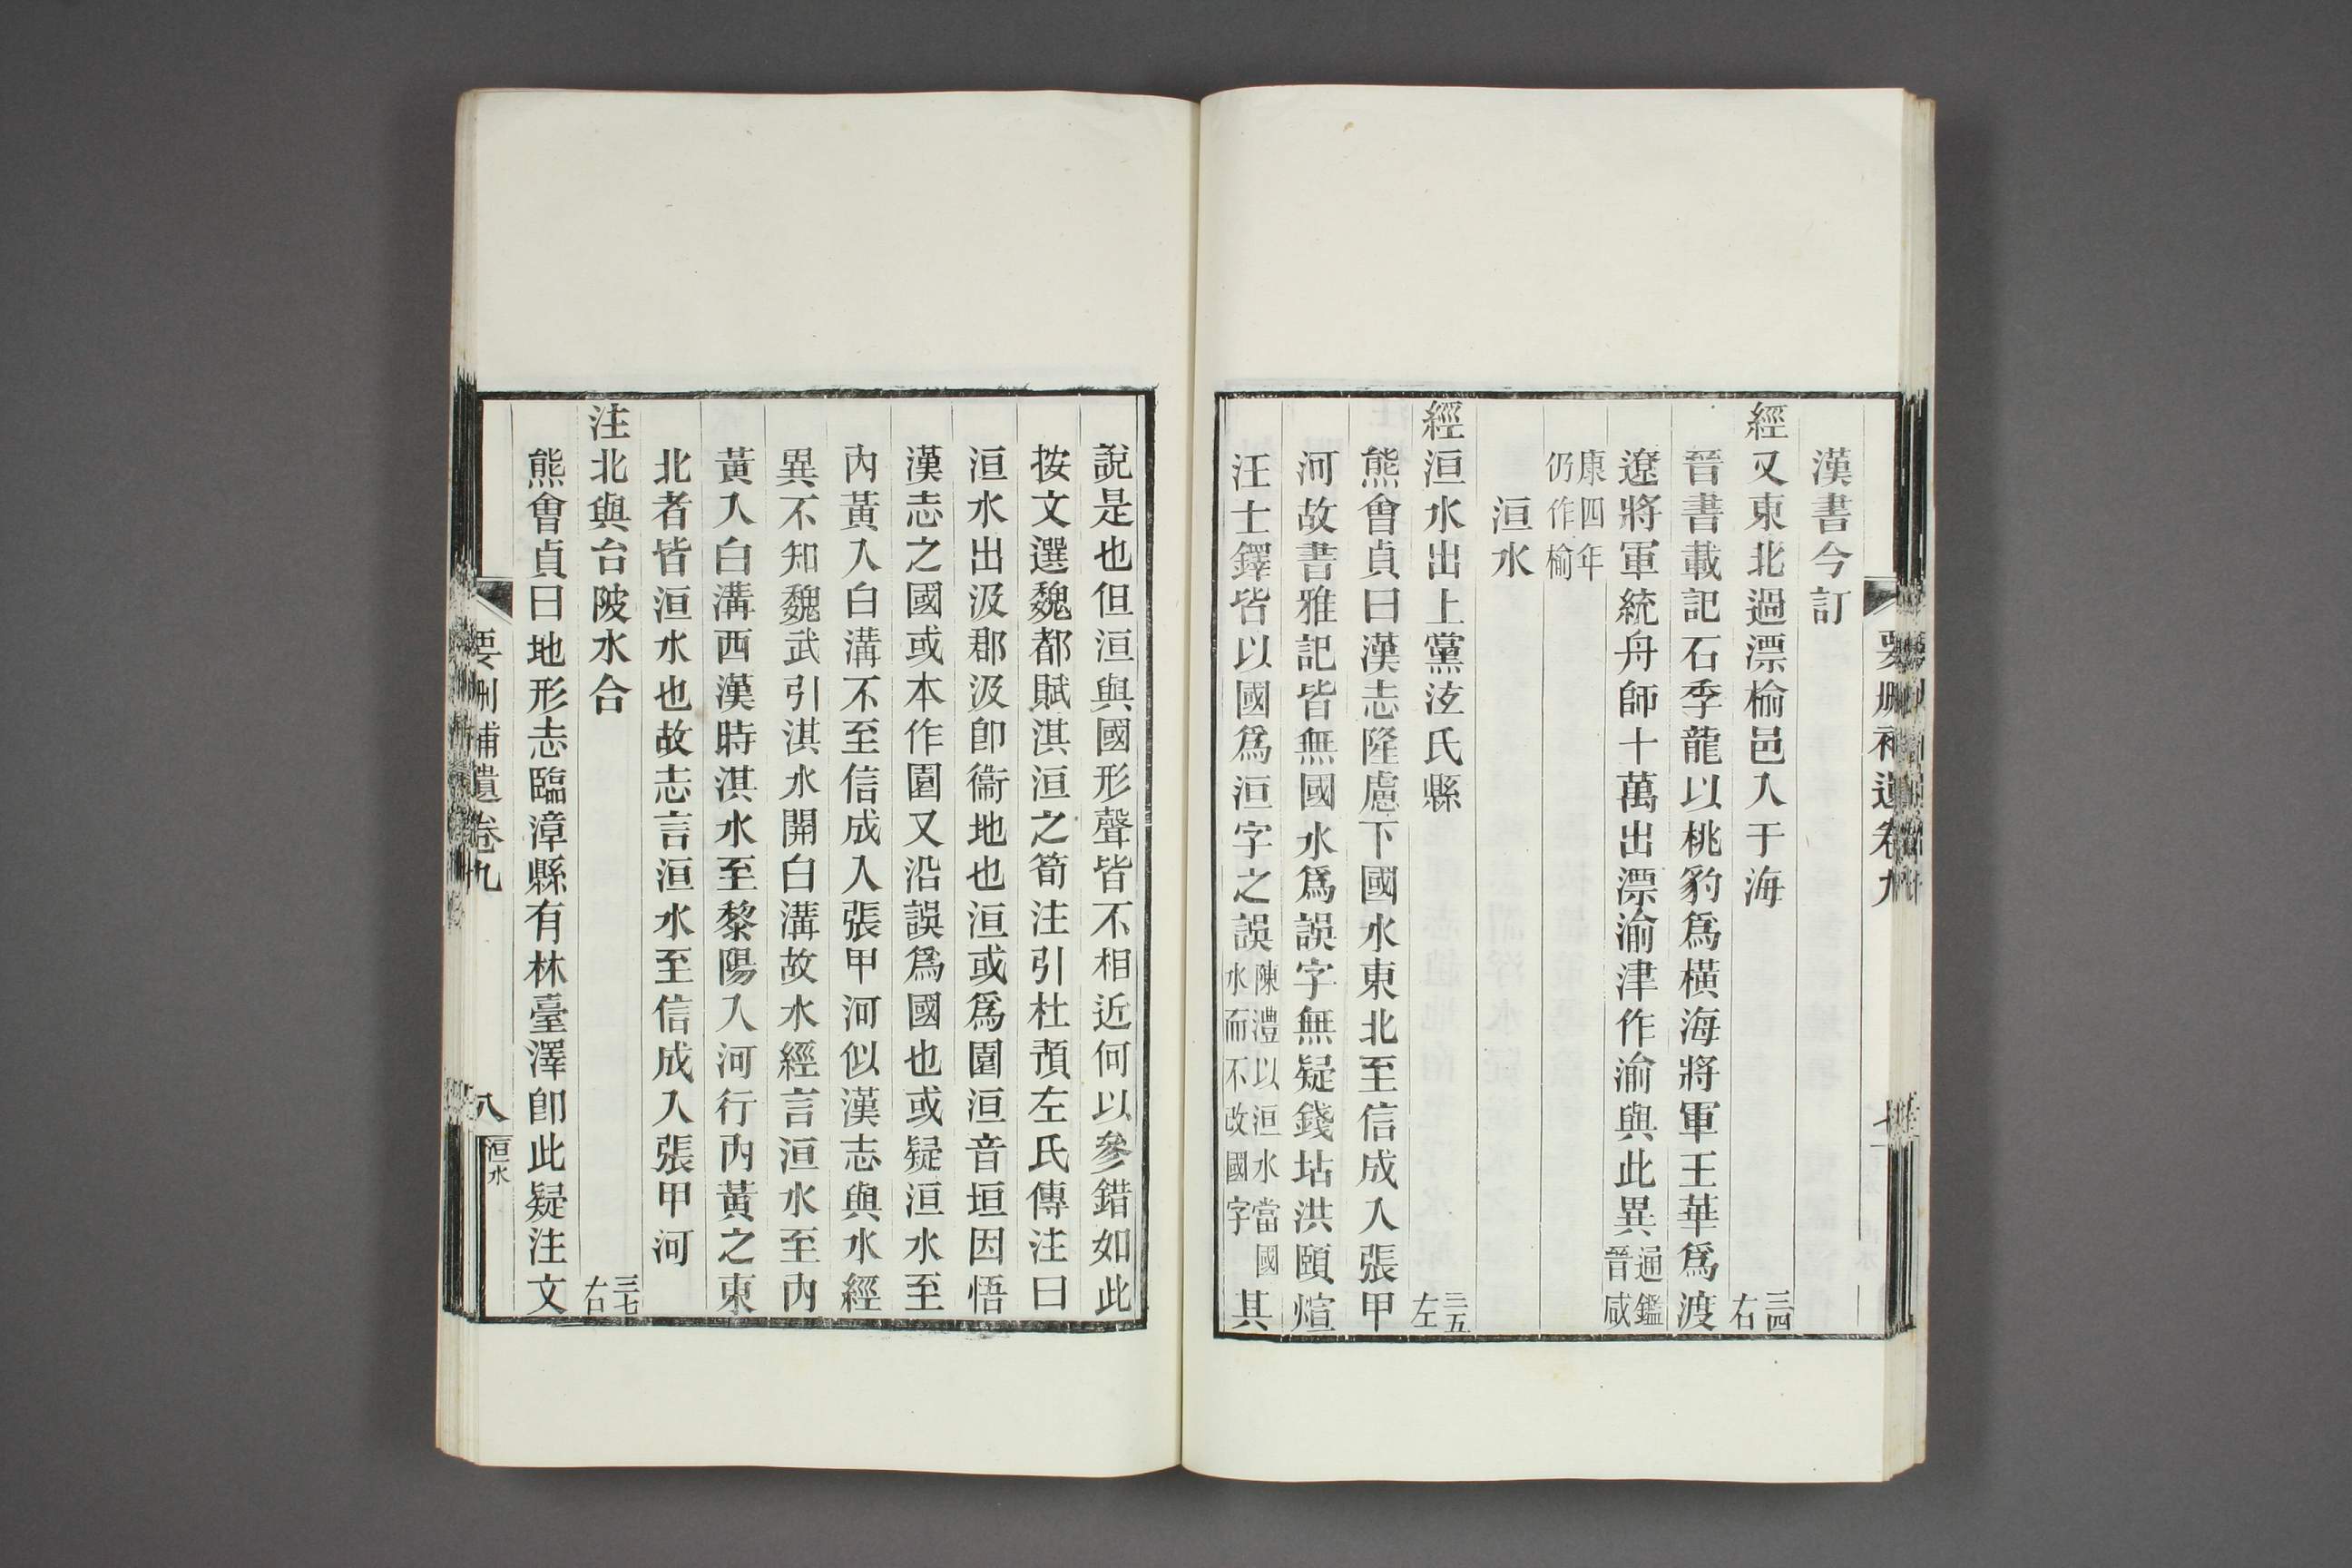 漢書今訂
經又東北過漂榆邑入于海三四右
晉書載記石季龍以桃豹爲橫海將軍王華爲渡
遼將軍統舟師十萬出漂渝津作渝與此異通鑑晉咸
康四年仍作榆
洹水
經洹水出上黨泫氏縣三五左
熊會貞曰漢志隆慮下國水東北至信成入張甲
河故書雅記皆無國水爲誤字無疑錢坫洪頤煊
汪士鐸皆以國爲洹字之誤陳澧以洹水當國水而不改國字其
說是也但洹與國形聲皆不相近何以參錯如此
按文選魏都賦淇洹之筍注引杜預左氏傳注曰
洹水出汲郡汲卽衞地也洹或爲圍洹音垣因悟
漢志之國或本作圍又沿誤爲國也或疑洹水至
內黃入白溝不至信成入張甲河似漢志與水經
異不知魏武引淇水開白溝故水經言洹水至內
黃入白溝西漢時淇水至黎陽入河行內黃之東
北者皆洹水也故志言洹水至信成入張甲河
注北與台陂水合三七右
熊會貞曰地形志臨漳縣有林臺澤卽此疑注文
要刪補遺卷九
八
洹水